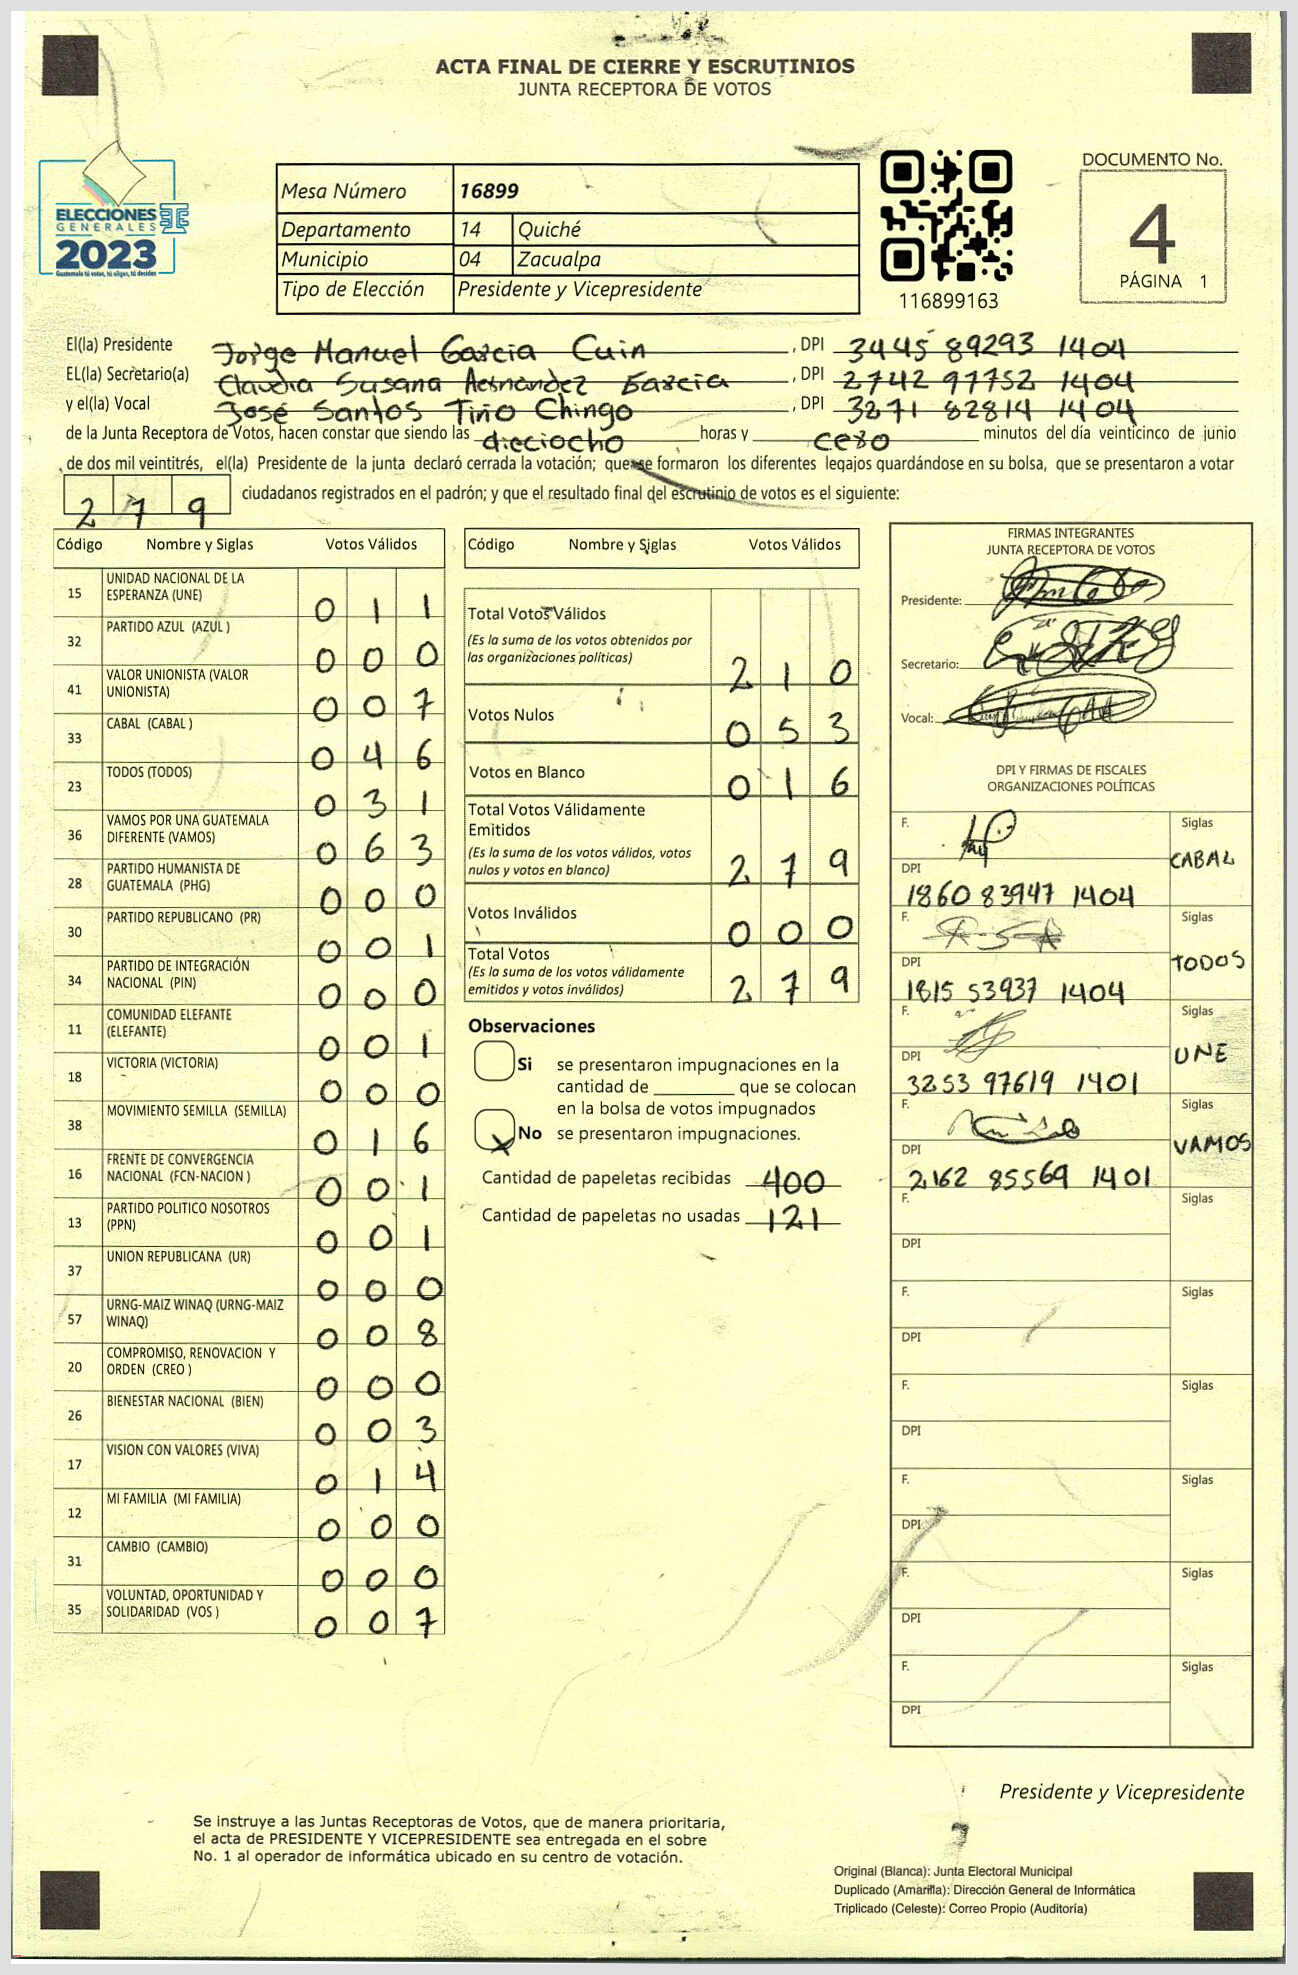 ACTA FINAL DE CIERRE Y ESCRUTINIOS
JUNTA RECEPTORA DE VOTOS
ELECCIONES
GENERALES
2023
Guatemala tú votas, tú eliges, tú decides
Mesa Número 16899
Departamento 14 Quiché
Municipio 04 Zacualpa
Tipo de Elección Presidente y Vicepresidente
116899163
DOCUMENTO No.
4
PÁGINA 1
El(la) Presidente Jorge Manuel Garcia Cuin , DPI 3445 89293 1404
EL(la) Secretario(a) Claudia Susana Hernandez Garcia , DPI 2742 97752 1404
y el(la) Vocal José Santos Tiño Chingo , DPI 3271 82814 1404
de la Junta Receptora de Votos, hacen constar que siendo las dieciocho horas y cero minutos del día veinticinco de junio
de dos mil veintitrés, el(la) Presidente de la junta declaró cerrada la votación; que se formaron los diferentes legajos guardándose en su bolsa, que se presentaron a votar
279 ciudadanos registrados en el padrón; y que el resultado final del escrutinio de votos es el siguiente:
Código Nombre y Siglas Votos Válidos
15 UNIDAD NACIONAL DE LA
ESPERANZA (UNE) 0 1 1
32 PARTIDO AZUL (AZUL ) 0 0 0
41 VALOR UNIONISTA (VALOR
UNIONISTA) 0 0 7
33 CABAL (CABAL ) 0 4 6
23 TODOS (TODOS) 0 3 1
36 VAMOS POR UNA GUATEMALA
DIFERENTE (VAMOS) 0 6 3
28 PARTIDO HUMANISTA DE
GUATEMALA (PHG) 0 0 0
30 PARTIDO REPUBLICANO (PR) 0 0 1
34 PARTIDO DE INTEGRACIÓN
NACIONAL (PIN) 0 0 0
11 COMUNIDAD ELEFANTE
(ELEFANTE) 0 0 1
18 VICTORIA (VICTORIA) 0 0 0
38 MOVIMIENTO SEMILLA (SEMILLA) 0 1 6
16 FRENTE DE CONVERGENCIA
NACIONAL (FCN-NACION ) 0 0 1
13 PARTIDO POLITICO NOSOTROS
(PPN) 0 0 1
37 UNION REPUBLICANA (UR) 0 0 0
57 URNG-MAIZ WINAQ (URNG-MAIZ
WINAQ) 0 0 8
20 COMPROMISO, RENOVACION Y
ORDEN (CREO ) 0 0 0
26 BIENESTAR NACIONAL (BIEN) 0 0 3
17 VISION CON VALORES (VIVA) 0 1 4
12 MI FAMILIA (MI FAMILIA) 0 0 0
31 CAMBIO (CAMBIO) 0 0 0
35 VOLUNTAD, OPORTUNIDAD Y
SOLIDARIDAD (VOS ) 0 0 7
Código Nombre y Siglas Votos Válidos
Total Votos Válidos
(Es la suma de los votos obtenidos por
las organizaciones políticas) 2 1 0
Votos Nulos 0 5 3
Votos en Blanco 0 1 6
Total Votos Válidamente
Emitidos
(Es la suma de los votos válidos, votos
nulos y votos en blanco) 2 7 9
Votos Inválidos 0 0 0
Total Votos
(Es la suma de los votos válidamente
emitidos y votos inválidos) 2 7 9
Observaciones
Si se presentaron impugnaciones en la
cantidad de que se colocan
en la bolsa de votos impugnados
X No se presentaron impugnaciones.
Cantidad de papeletas recibidas 400
Cantidad de papeletas no usadas 121
FIRMAS INTEGRANTES
JUNTA RECEPTORA DE VOTOS
Presidente:
Secretario:
Vocal:
DPI Y FIRMAS DE FISCALES
ORGANIZACIONES POLÍTICAS
F. Siglas
CABAL
DPI
1860 83947 1404
F. Siglas
TODOS
DPI
1815 53937 1404
F. Siglas
UNE
DPI
3253 97619 1401
F. Siglas
VAMOS
DPI
2162 85569 1401
F. Siglas
DPI
F. Siglas
DPI
F. Siglas
DPI
F. Siglas
DPI
F. Siglas
DPI
F. Siglas
DPI
Presidente y Vicepresidente
Se instruye a las Juntas Receptoras de Votos, que de manera prioritaria,
el acta de PRESIDENTE Y VICEPRESIDENTE sea entregada en el sobre
No. 1 al operador de informática ubicado en su centro de votación.
Original (Blanca): Junta Electoral Municipal
Duplicado (Amarilla): Dirección General de Informática
Triplicado (Celeste): Correo Propio (Auditoría)